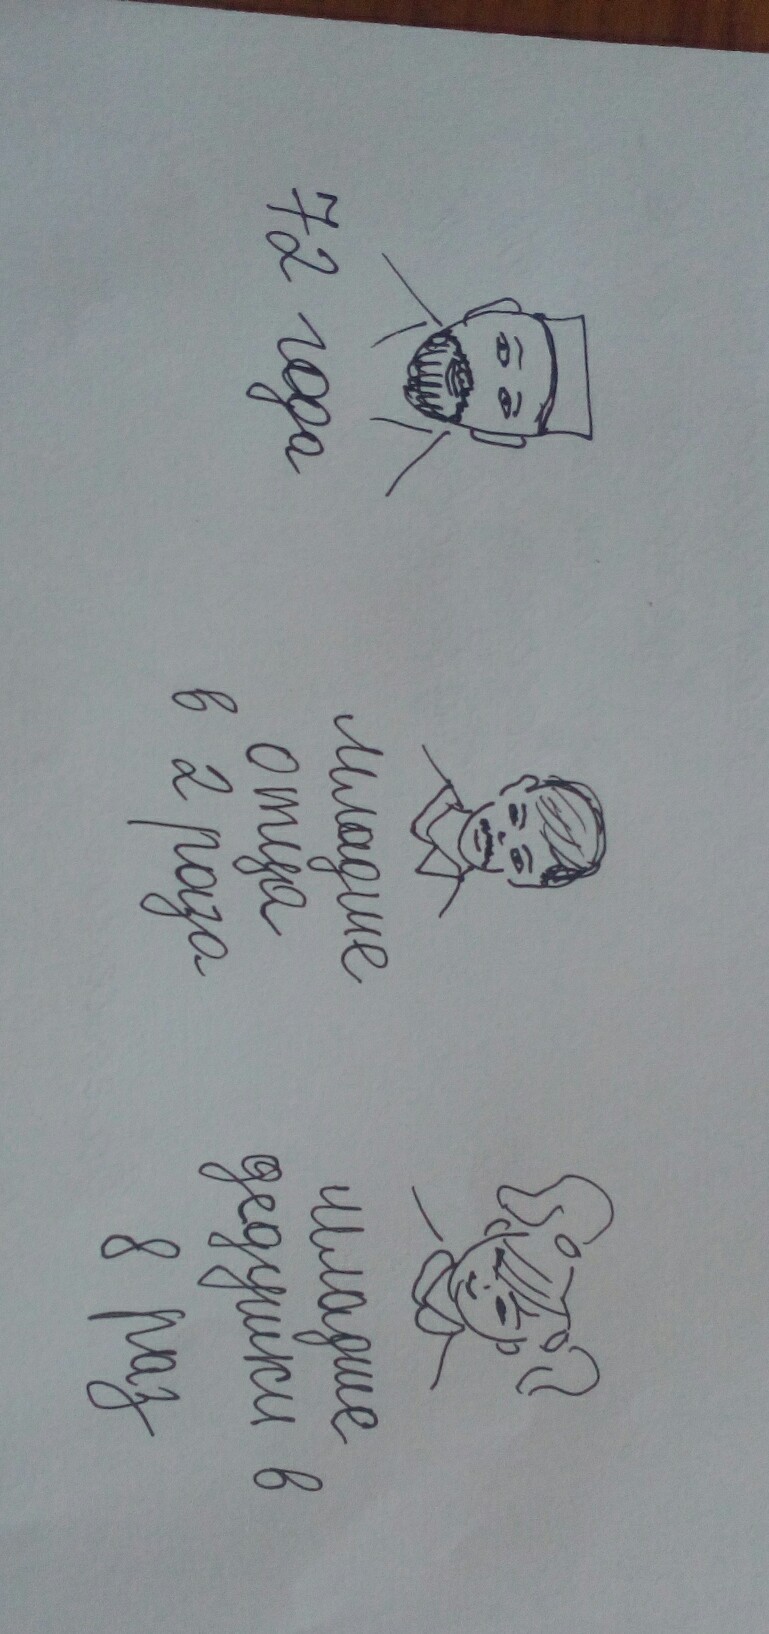 72 года
младше
отца
в 2 раза
младше
дедушки в
8 раз